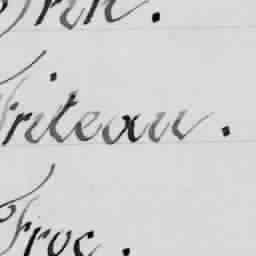 Friteau.
Froc.